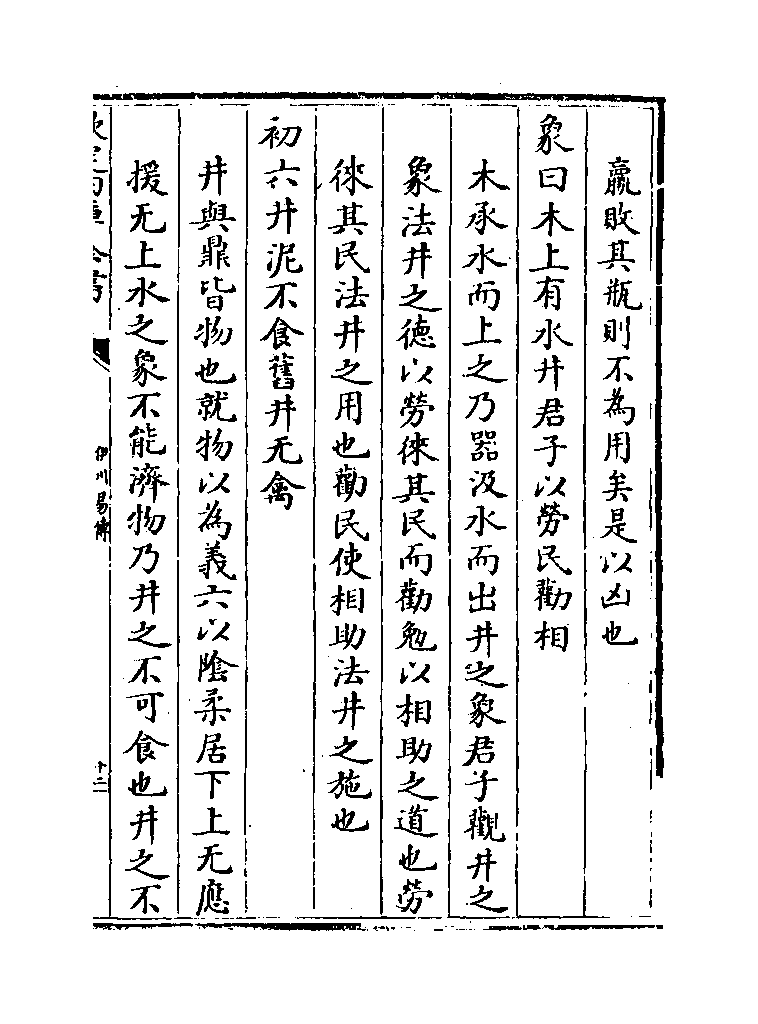 羸敗其瓶則不為用矣是以凶也
象曰木上有水井君子以勞民勸相
木承水而上之乃器汲水而出井之象君子觀井之
象法井之德以勞徠其民而勸勉以相助之道也勞
徠其民法井之用也勸民使相助法井之施也
初六井泥不食舊井无禽
井與鼎皆物也就物以為義六以陰柔居下上无應
援无上水之象不能濟物乃井之不可食也井之不
伊川易傳
十二